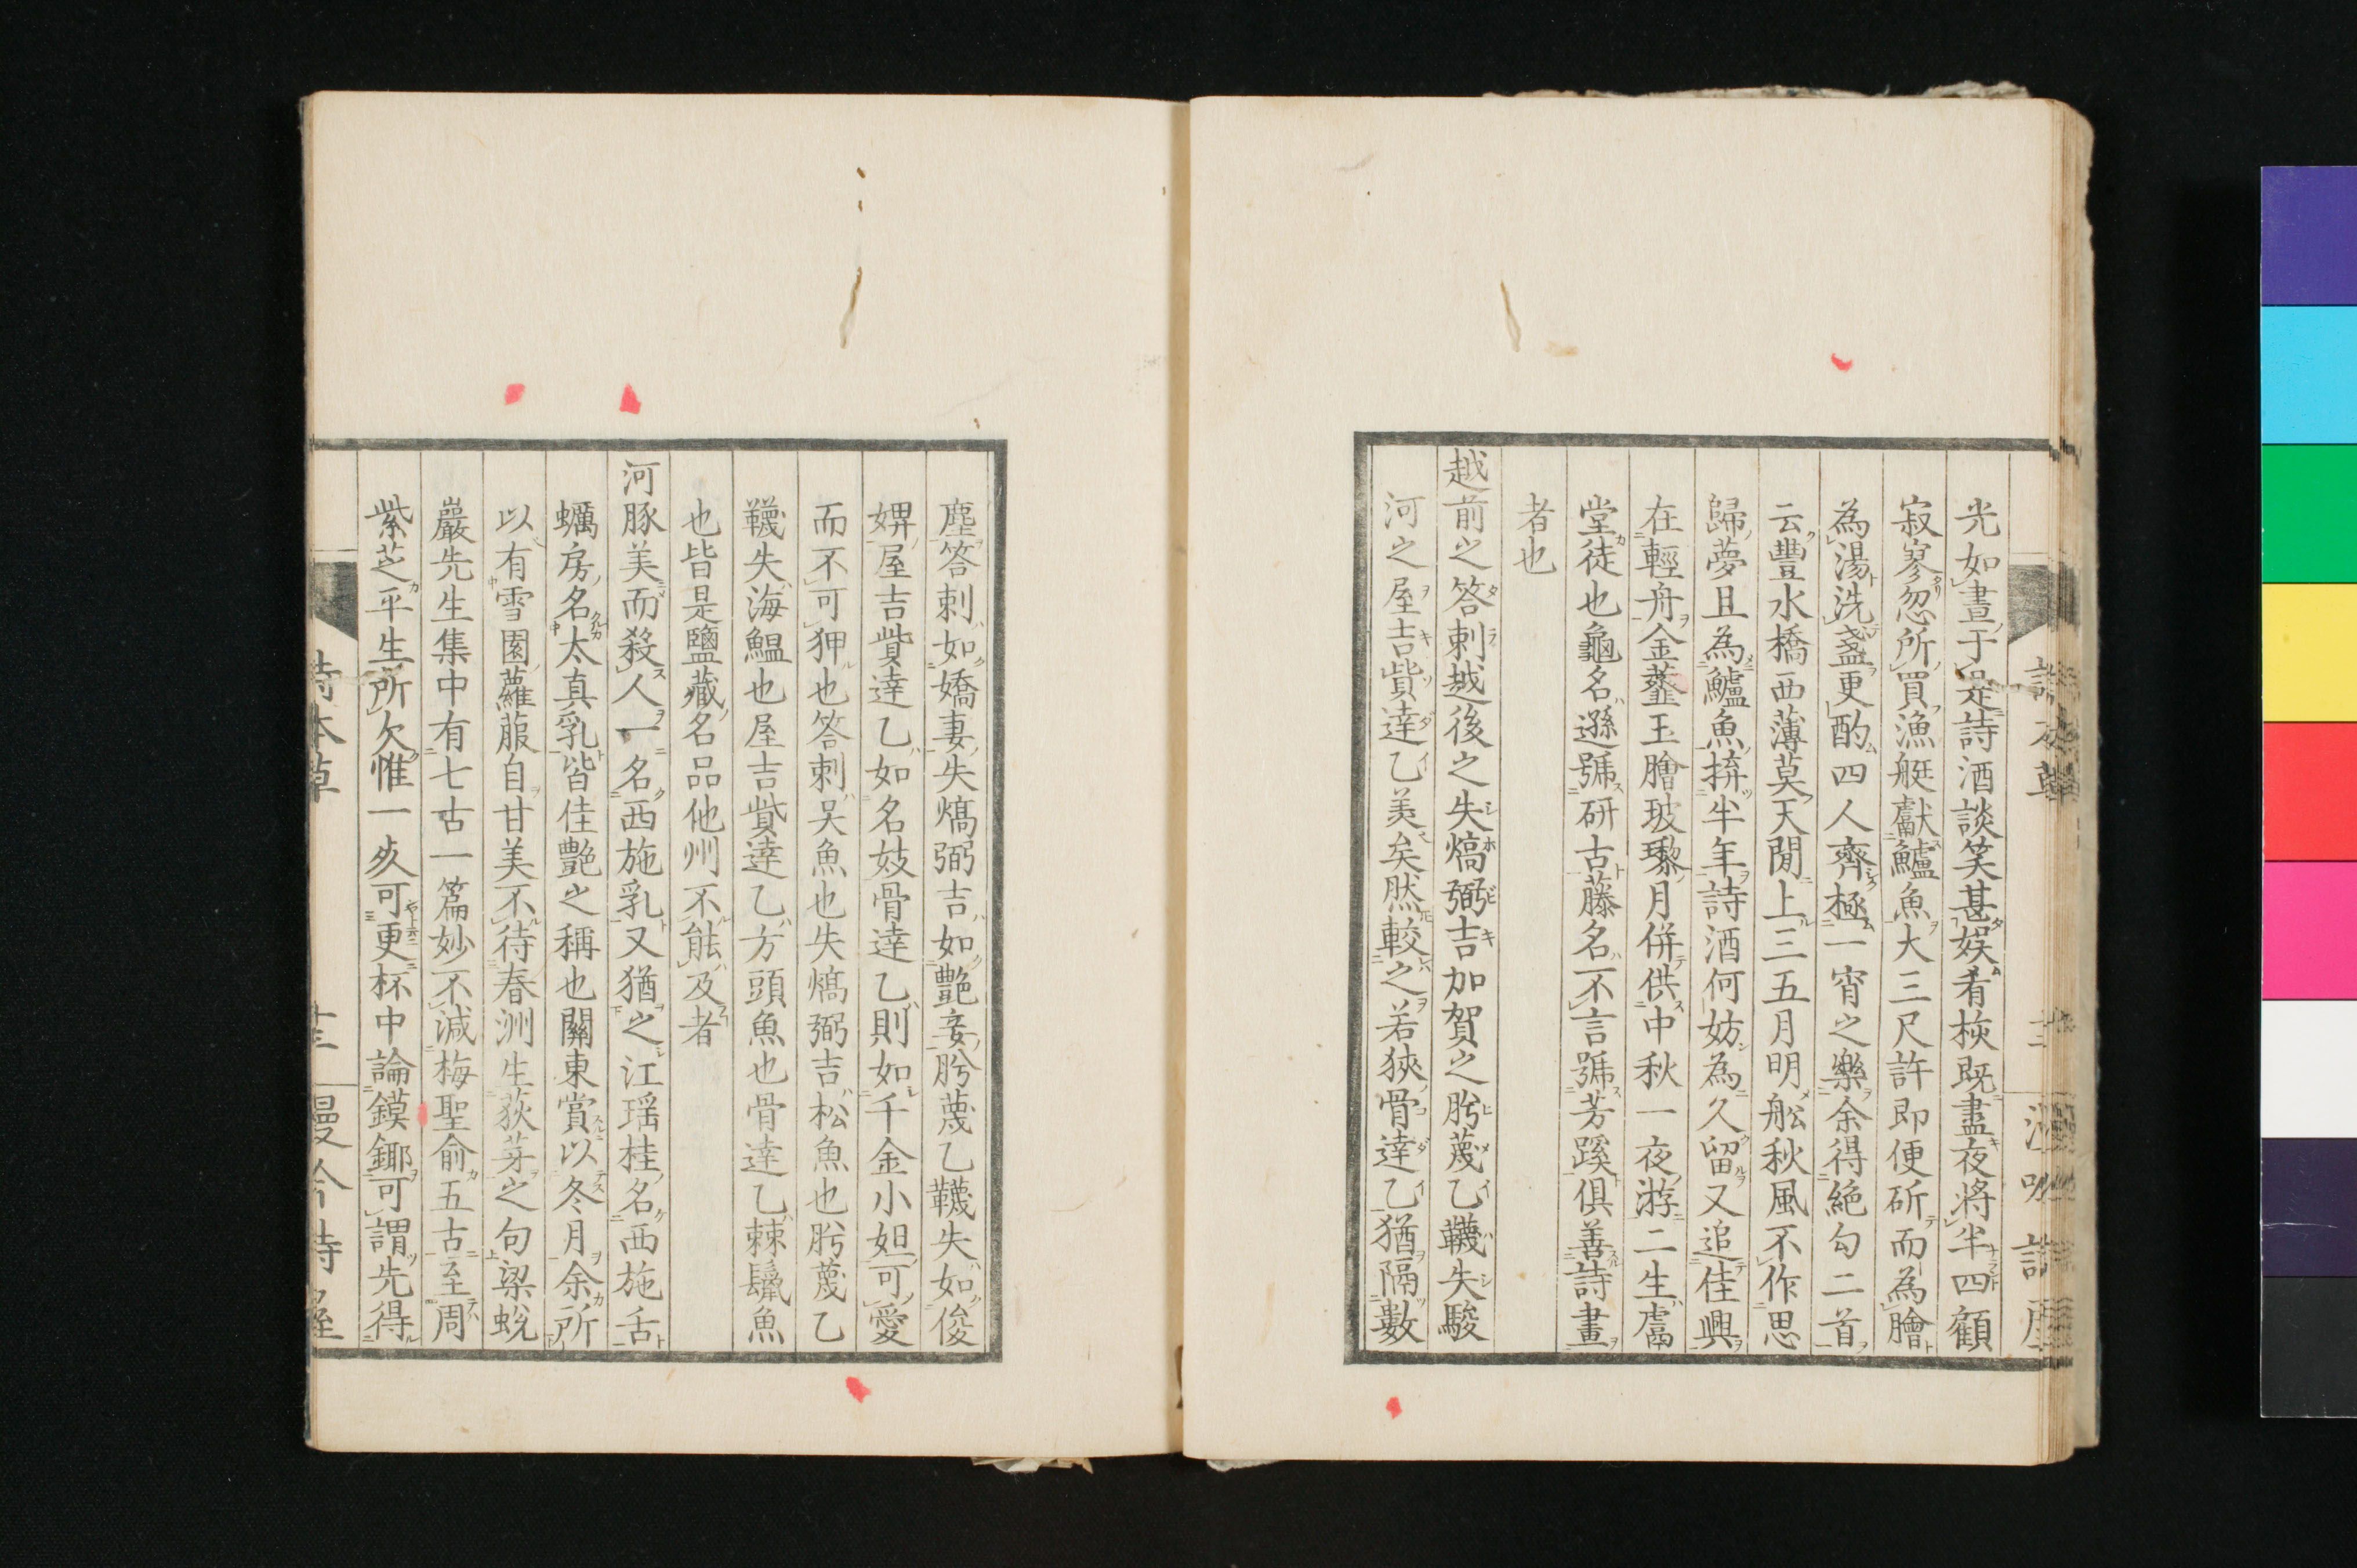 光如晝于是詩酒談笑甚娯肴核既盡夜將半四顧
寂寥忽所買漁艇獻鱸魚大三尺許即便斫而為膾
為湯洗盞更酌四人齊極一宵之樂余得絶句二首
云豐水橋西薄莫天閒上三五月明舩秋風不作思
歸夢且為鱸魚擠半年詩酒何妨為久留又追佳興
在輕舟金虀玉膾玻瓈月併供中秋一夜游二生鬳
堂徒也龜名遜號研古藤名不言號芳蹊倶善詩畫
者也
越前之答剌越後之失熇弻吉加賀之肹蔑乙韈失駿
河之屋吉貲達乙美矣然較之若狹骨達乙猶隔數
塵答剌如嬌妻失熇弻吉如艷妾肹蔑乙韈失如俊
婢屋吉貲達乙如名妓骨達乙則如千金小姐可愛
而不可狎也答剌吴魚也失熇弻吉松魚也肹蔑乙
韈失海鰮也屋吉貲達乙方頭魚也骨達乙棘鬣魚
也皆是鹽藏名品他州不能及者
河豚美而殺人一名西施乳又猶之江瑶桂名西施舌
蠣房名太真乳皆佳艷之稱也關東賞以冬月余所
以有雪園蘿菔自甘美不待春洲生荻芽之句梁蛻
巖先生集中有七古一篇妙不減梅聖俞五古至周
紫芝平生所欠惟一㱐可更杯中論鏌鎁可謂先得
詩本草